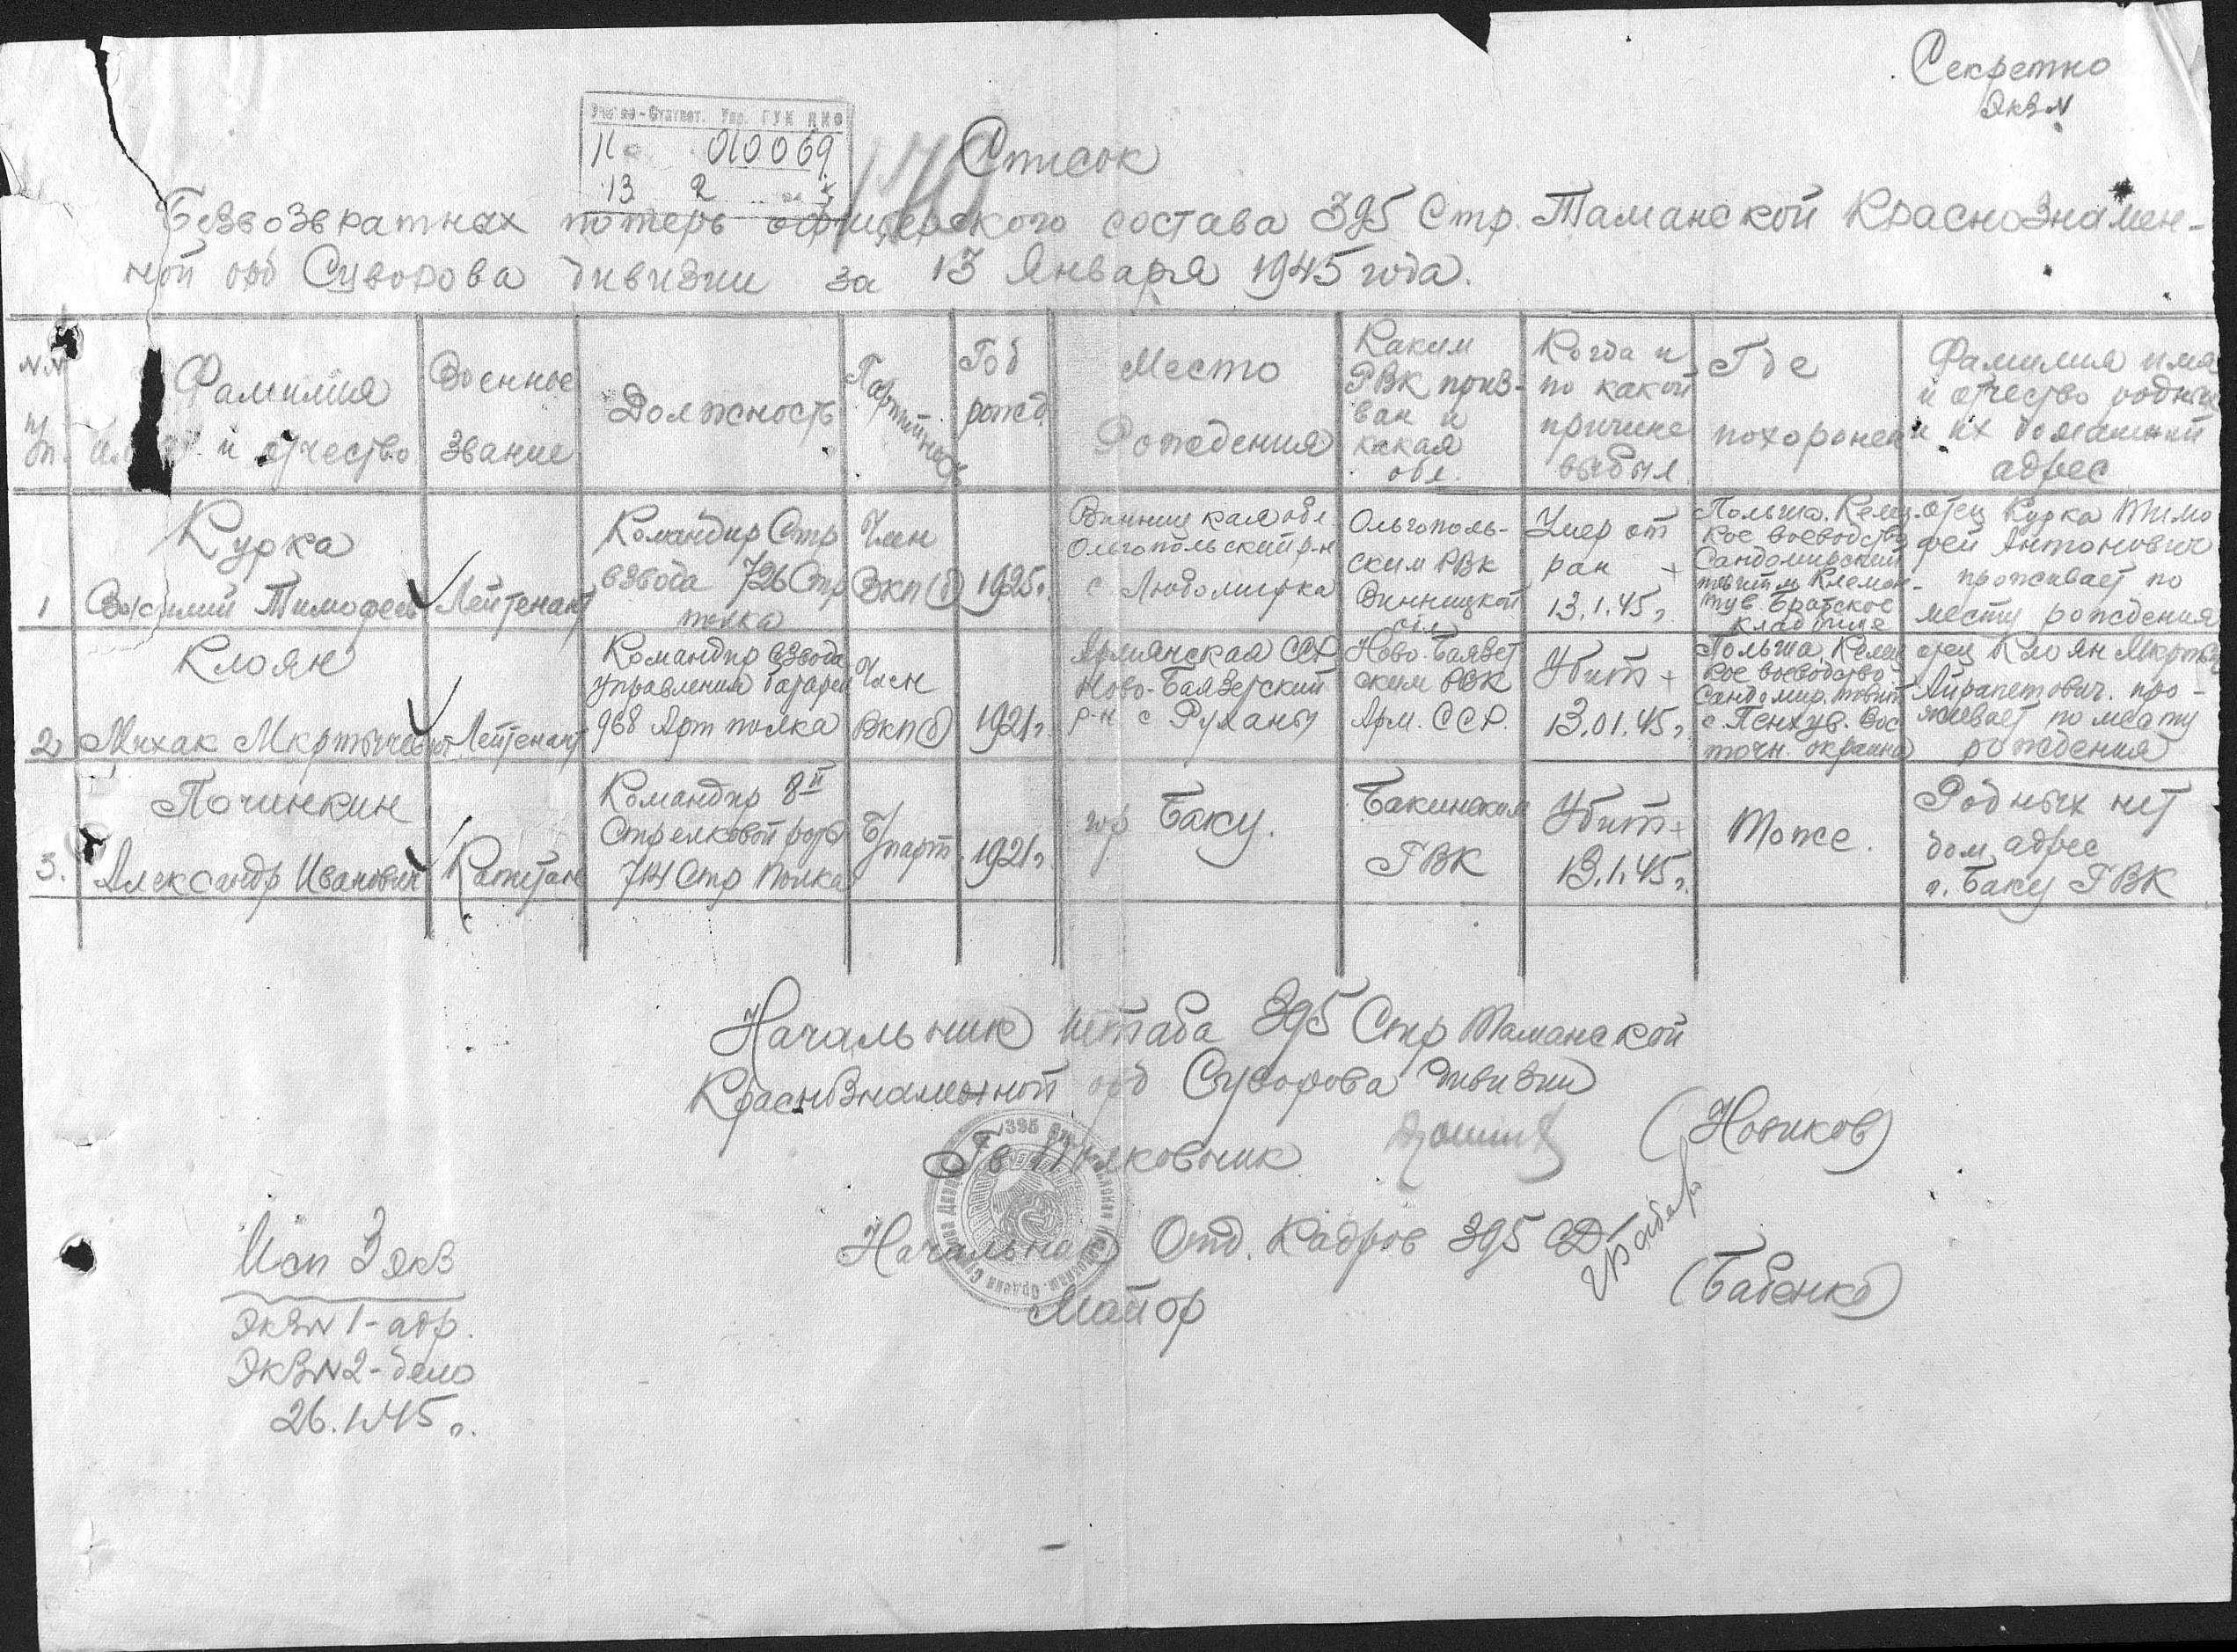 Секретно
Экз N
Учетно-Статист. Упр. ГУК НКО
010069
13 2
Список
Безвозвратных потерь офицерского состава 395 Стр. Таманской Краснознамен-
ной орд Суворова дивизии за 13 Января 1945 года.
NN
п/п.
Фамилия
имя и отчество
Военное
звание
Должность
Партийность
Год
рожд.
Место
Рождения
Каким
РВК приз-
ван и
какая
обл.
Когда и
по какой
причине
выбыл
Где
похоронен
Фамилия имя
и отчество родных
и их домашний
адрес
1
Курка
Василий Тимофеев
Лейтенант
Командир Стр
взвода 726 Стр
полка
Член
ВКП(б)
1925г.
Винницкая обл.
Ольгопольский р-н
с. Любомирка
Ольгополь-
ским РВК
Винницкой
обл
Умер от
ран +
13.1.45г.
Польша. Келец-
кое воеводство
Сандомирский
Братское
кладбище
отец Курка Тимо
фей Антонович
проживает по
месту рождения
2
Клоян
Михак Мкртычевич
Лейтенант
Командир взвода
управления батареи
968 Арт полка
Член
ВКП(б)
1921г.
Армянская ССР
Ново-Баязетский
р-н с Руханы
Ново-Баязет
ским РВК
Арм. ССР.
Убит +
13.01.45г.
Польша. Келец
кое воеводство
Сандомир.
Вос
точн. окраина
отец Клоян Мкртыч
Айрапетович. про-
живает по месту
рождения
3.
Починкин
Александр Иванович
Капитан
Командир 8й
Стрелковой роты
714 Стр Полка
Б/парт.
1921г.
гор Баку.
Бакинским
ГВК
Убит +
13.1.45г.
Тоже.
Родных нет
дом. адрес
г. Баку ГВК
Начальник штаба 395 Стр Таманской
Краснознаменной орд Суворова дивизии
Гв Полковник (Новиков)
Начальник Отд. Кадров 395 СД
Майор (Бабенко)
Исп 2 экз
Экз N 1 - адр.
Экз N 2 - дело
26.1.45г.